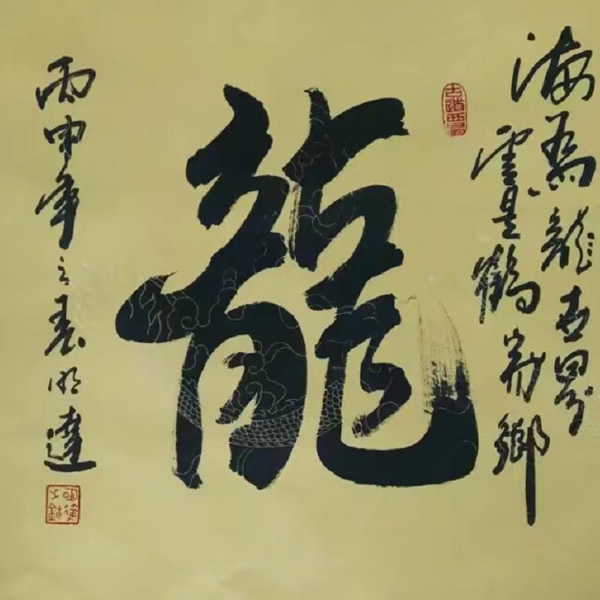 海為龍世界
雲是鶴家鄉
龍
丙申年之春明達